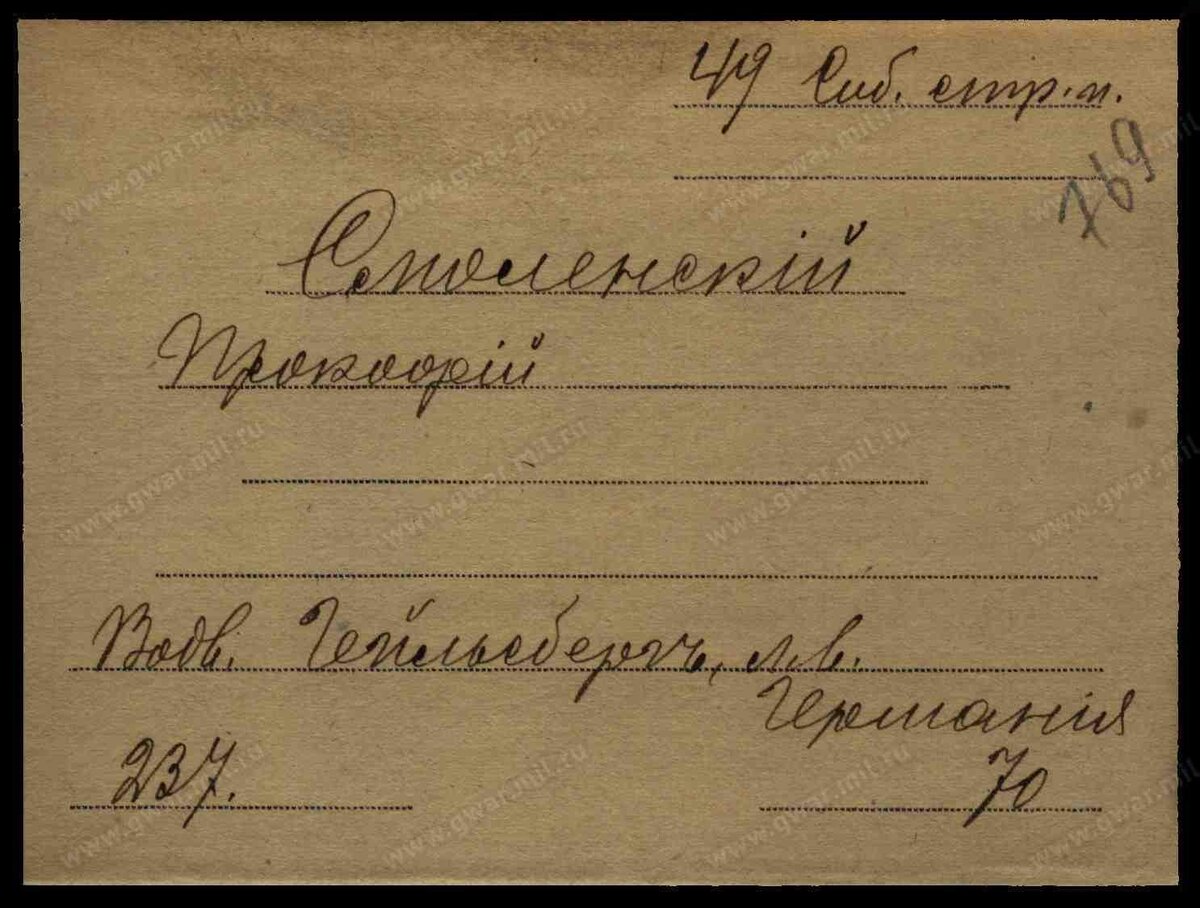 49 Сиб. стр. п.
769
Смоленскій
Прокофій
Водв. Гейльсбергъ, л.в.
Германія
237.
70
www.gwar.mil.ru